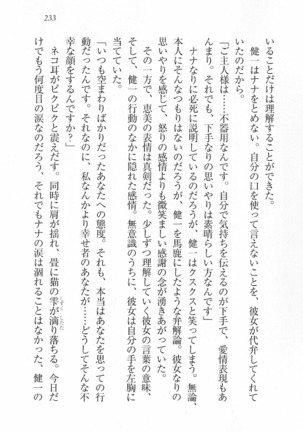 233
いることだけは理解することができた。
健一はナナをとがめない。自分の口を使って言えないことを、彼女が代弁してくれて
いたのだから。
「ご主人様は……不器用なんです。自分で気持ちを伝えるのが下手で、愛情表現もあ
んまり。それでも、下手なりの思いやりは素晴らしい方なんです」
ナナなりに必死に説明しているのだろうが、健一はクスクスと笑ってしまう。無論、
本人にそんなつもりはないのだろうが、健一を馬鹿にしたような弁解論。彼女なりの
思いやりを感じて、怒りの感情よりも微笑ましい感謝の念が湧きあがっていた。
その一方で、恵美の表情は真剣だった。少しずつ理解していく彼女の言葉の意味、
そして、健一の行動のなかに隠れた感情。無意識のうちに、彼女は自分の手を左胸に
当てていた。
「いつも空まわりばかりだったあなたへの態度。それも、本当はあなたを思っての行
動だったんです。それなのに、私なんかより幸せ者のあなたが……どうしてそんな不
幸な顔をするんですか？」
ネコ耳がピクピクと震えだす。同時に肩が揺れ、畳に猫の雫が滴り落ちる。今日だ
けでもう何度目の涙なのだろう、それでもナナの涙は涸れることはなかった。健一の